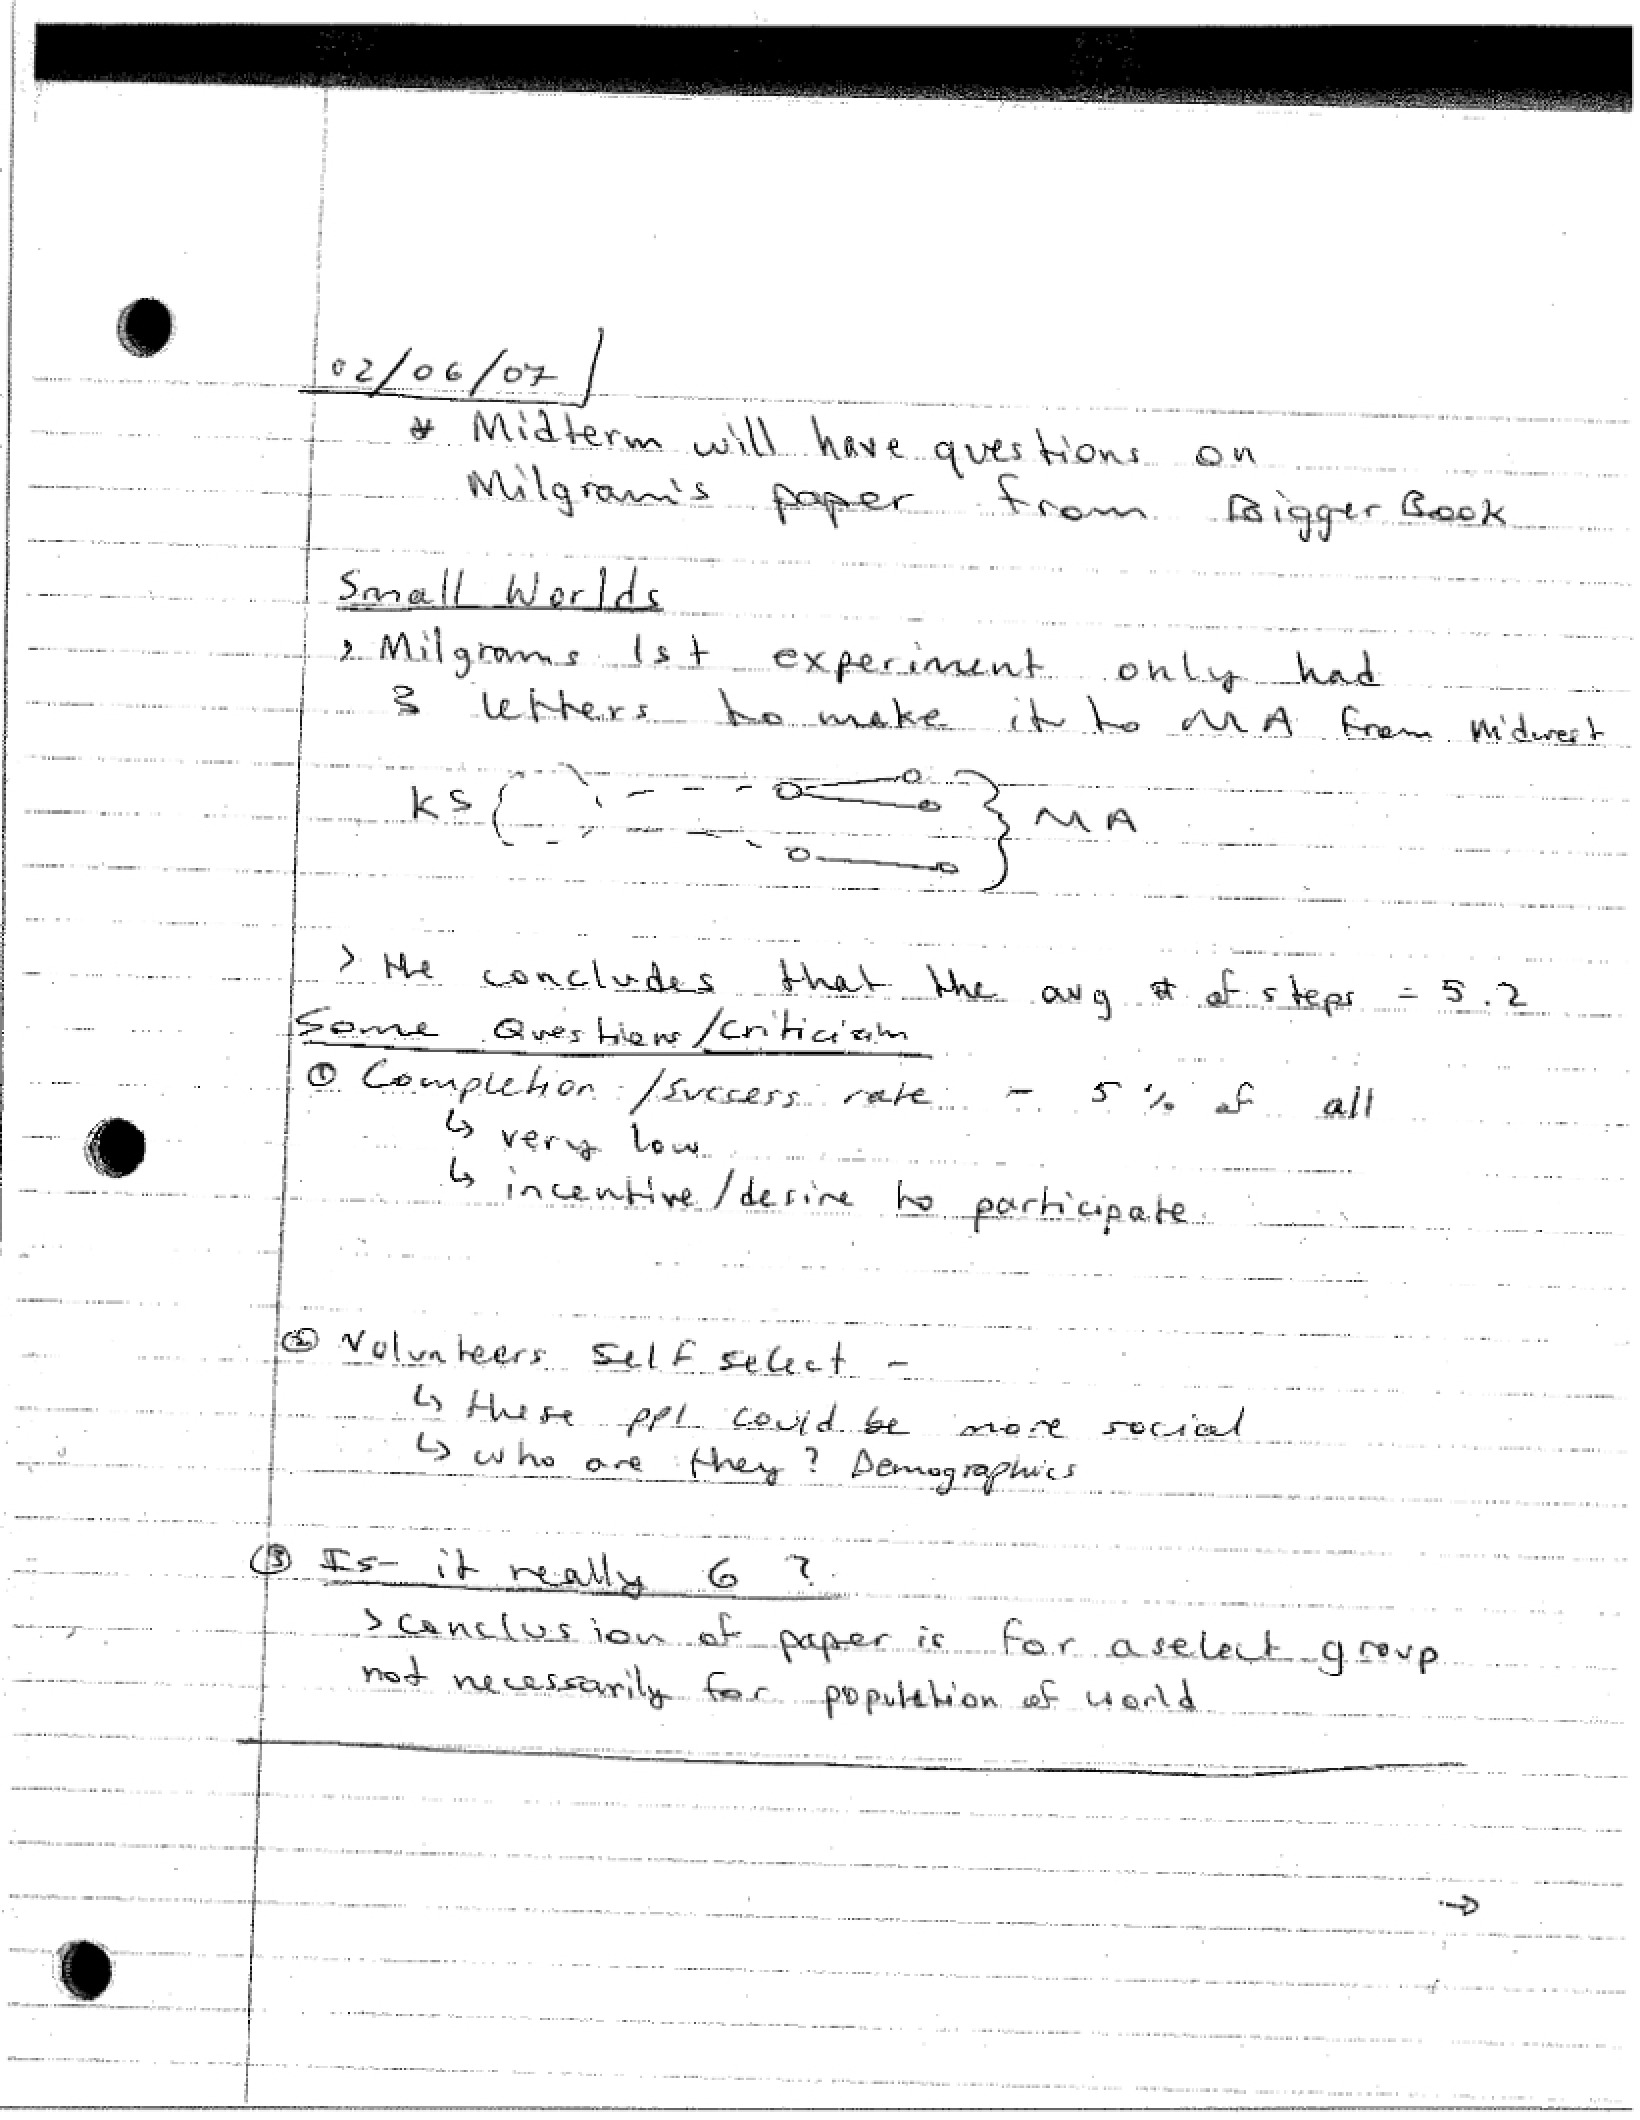 02/06/07
* Midterm will have questions on
Milgram's paper from Bigger Book
Small Worlds
> Milgrams 1st experiment only had
3 letters to make it to MA from Midwest
KS MA
> He concludes that the avg # of steps = 5.2
Some Questions/criticism
① Completion /success rate - 5% of all
↳ very low
↳ incentive/desire to participate
② Volunteers self select -
↳ these ppl could be more social
↳ who are they? Demographics
③ Is it really 6 ?
> conclusion of paper is for a select group
not necessarily for population of world
→